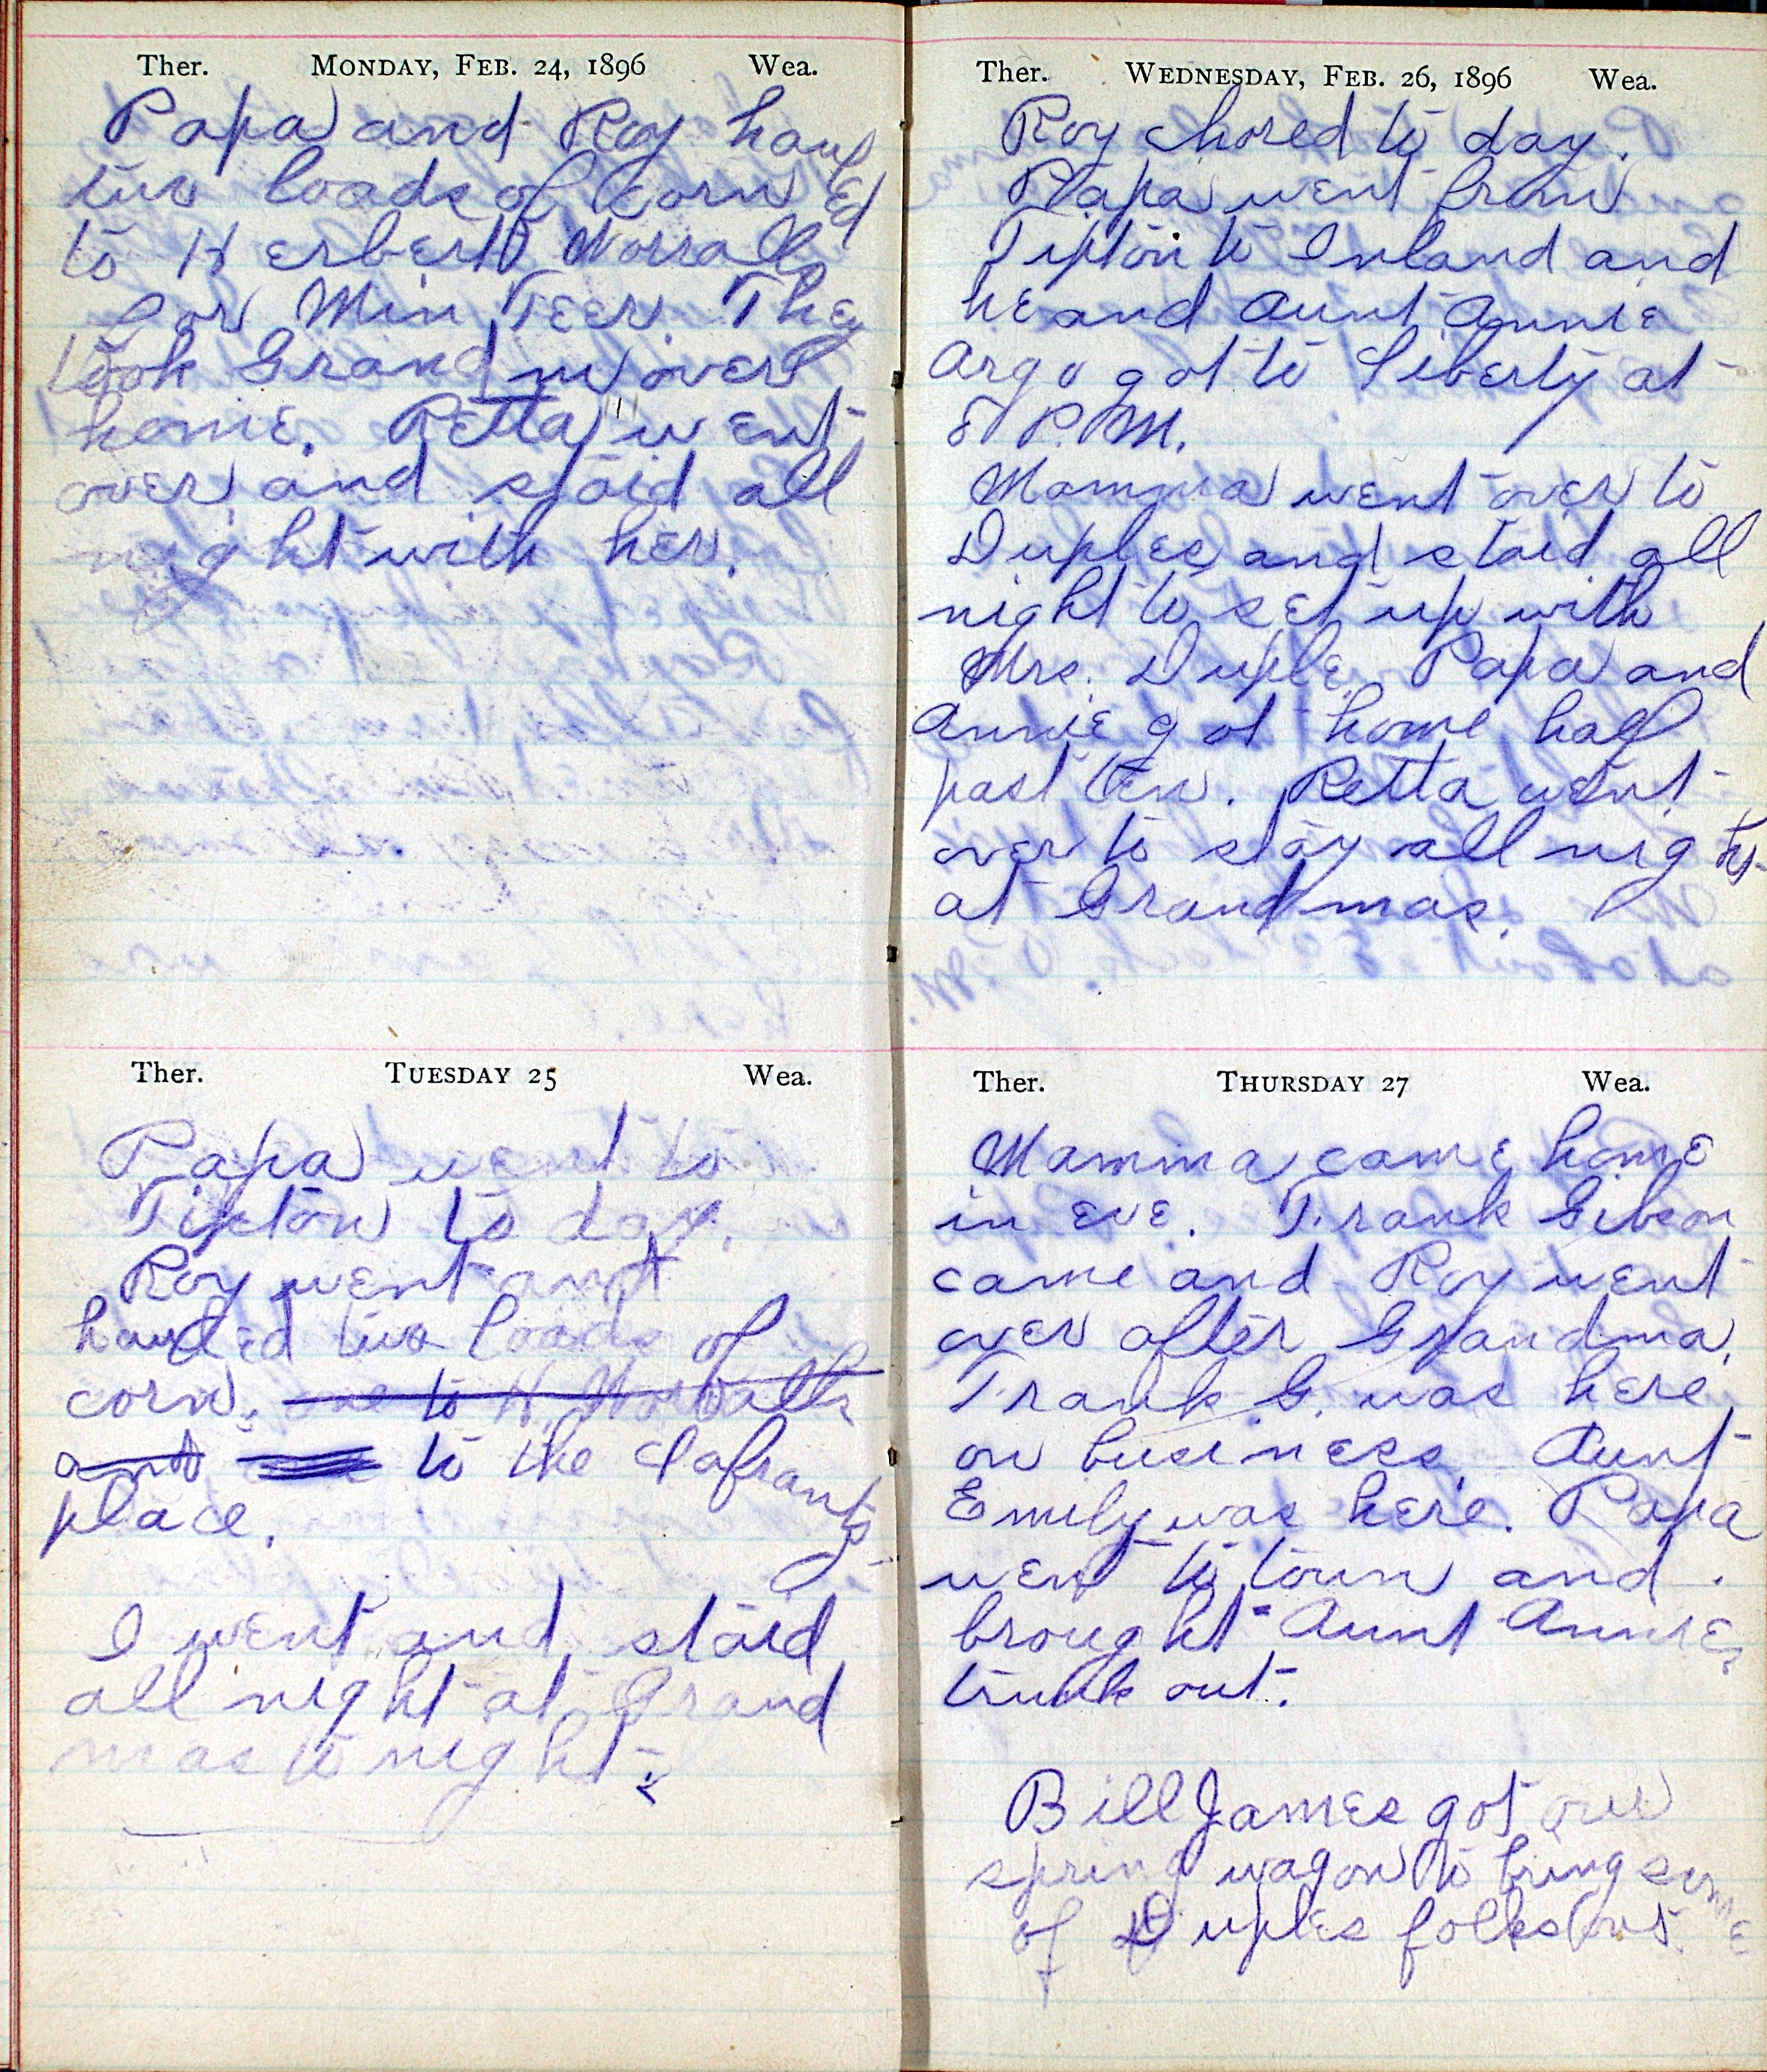 Ther. MONDAY, FEB. 24, 1896 Wea.
Papa and Roy haul
two loads of corn ed
to Herbert Worralls
for Min Teer. They
took Grandm over
home. Retta went
over and staid all
night with her.
Ther. TUESDAY 25 Wea.
Papa went to
Tipton to day.
Roy went and
hauled two loads of
corn, one to H. Worralls
and to the Lafrants
place.
I went and staid
all night at Grand
mas to night.
Ther. WEDNESDAY, FEB. 26, 1896 Wea.
Roy chored to day.
Papa went from
Tipton to Inland and
he and Aunt Annie
Argo got to Liberty at
8 P.M.
Mamma went over to
Duples and staid all
night to set up with
Mrs. Duple. Papa and
Annie got home half
past ten. Retta went
over to stay all night
at Grandmas.
Ther. THURSDAY 27 Wea.
Mamma came home
in eve. Frank Gibson
came and Roy went
over after Grandma.
Frank G. was here
on business. Aunt
Emily was here. Papa
went to town and
brought Aunt Annies
trunk out.
Bill James got our
spring wagon to bring some
of Duples folks out.